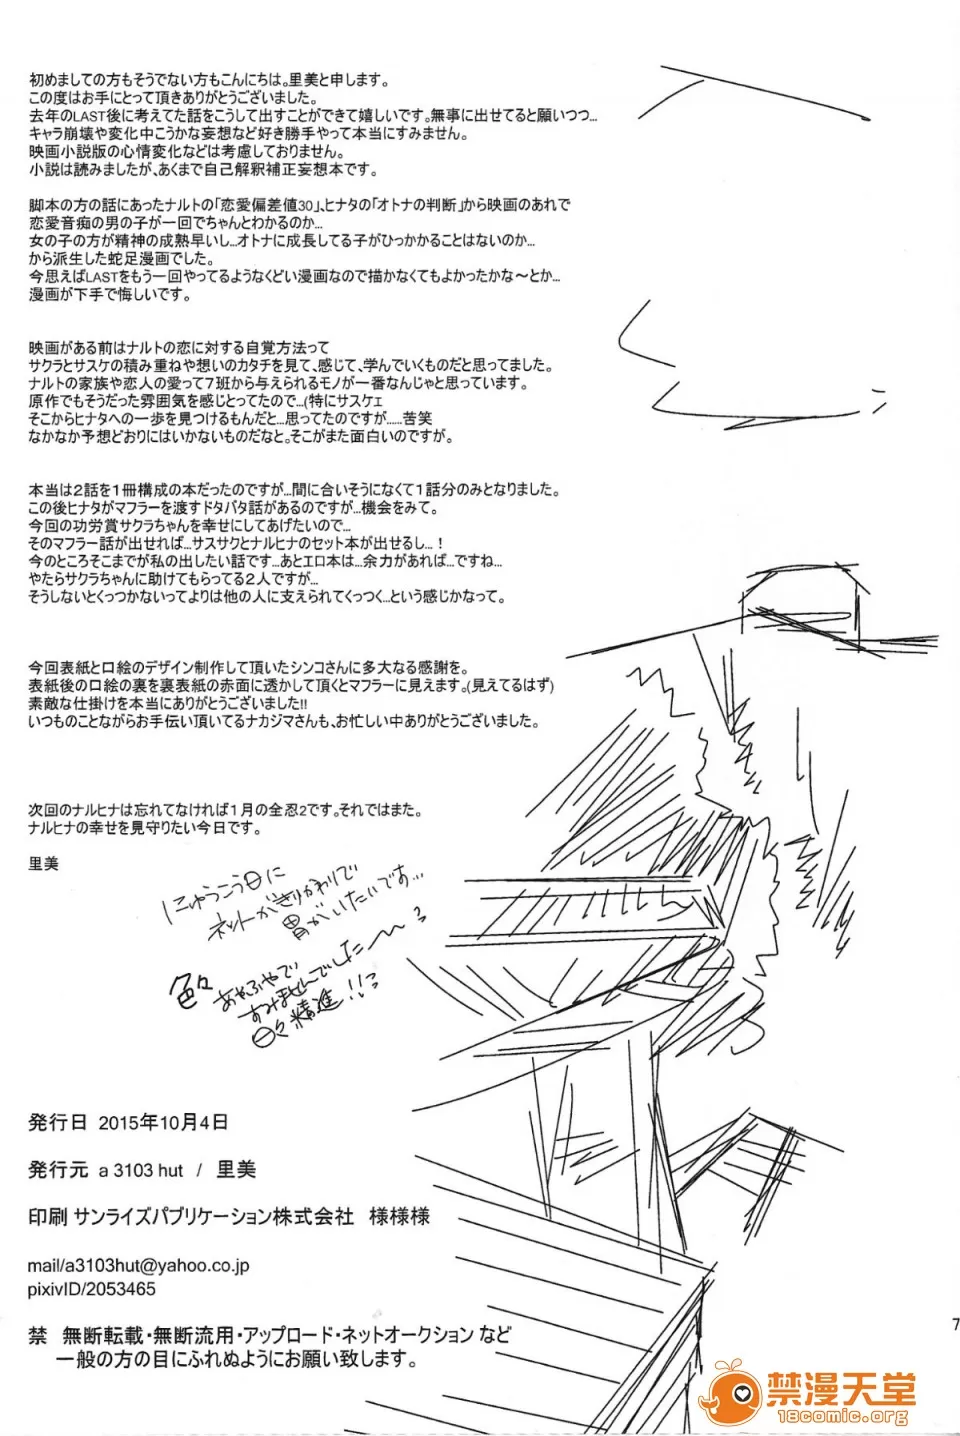 初めましての方もそうでない方もこんにちは。里美と申します。
この度はお手にとって頂きありがとうございました。
去年のLAST後に考えてた話をこうして出すことができて嬉しいです。無事に出せてると願いつつ…
キャラ崩壊や変化中こうかな妄想など好き勝手やって本当にすみません。
映画小説版の心情変化などは考慮しておりません。
小説は読みましたが、あくまで自己解釈補正妄想本です。
脚本の方の話にあったナルトの「恋愛偏差値30」、ヒナタの「オトナの判断」から映画のあれで
恋愛音痴の男の子が一回でちゃんとわかるのか…
女の子の方が精神の成熟早いし…オトナに成長してる子がひっかかることはないのか…
から派生した蛇足漫画でした。
今思えばLASTをもう一回やってるようなくどい漫画なので描かなくてもよかったかな～とか…
漫画が下手で悔しいです。
映画がある前はナルトの恋に対する自覚方法って
サクラとサスケの積み重ねや想いのカタチを見て、感じて、学んでいくものだと思ってました。
ナルトの家族や恋人の愛って7班から与えられるモノが一番なんじゃと思っています。
原作でもそうだった雰囲気を感じとってたので…(特にサスケェ
そこからヒナタへの一歩を見つけるもんだと…思ってたのですが……苦笑
なかなか予想どおりにはいかないものだなと。そこがまた面白いのですが。
本当は２話を１冊構成の本だったのですが…間に合いそうになくて１話分のみとなりました。
この後ヒナタがマフラーを渡すドタバタ話があるのですが…機会をみて。
今回の功労賞サクラちゃんを幸せにしてあげたいので…
そのマフラー話が出せれば…サスサクとナルヒナのセット本が出せるし…！
今のところそこまでが私の出したい話です…あとエロ本は…余力があれば…ですね…
やたらサクラちゃんに助けてもらってる２人ですが…
そうしないとくっつかないってよりは他の人に支えられてくっつく…という感じかなって。
今回表紙と口絵のデザイン制作して頂いたシンコさんに多大なる感謝を。
表紙後の口絵の裏を裏表紙の赤面に透かして頂くとマフラーに見えます。(見えてるはず)
素敵な仕掛けを本当にありがとうございました!!
いつものことながらお手伝い頂いてるナカジマさんも、お忙しい中ありがとうございました。
次回のナルヒナは忘れてなければ１月の全忍2です。それではまた。
ナルヒナの幸せを見守りたい今日です。
里美
にゅうこう日に
ネットがきりかわりで
胃がいたいです…
色々あやふやで
すみませんでした〜〜
日々精進!!
発行日 2015年10月4日
発行元 a 3103 hut / 里美
印刷 サンライズパブリケーション株式会社 様様様
mail/a3103hut@yahoo.co.jp
pixivID/2053465
禁 無断転載・無断流用・アップロード・ネットオークション など
一般の方の目にふれぬようにお願い致します。
7
禁漫天堂
18comic.org